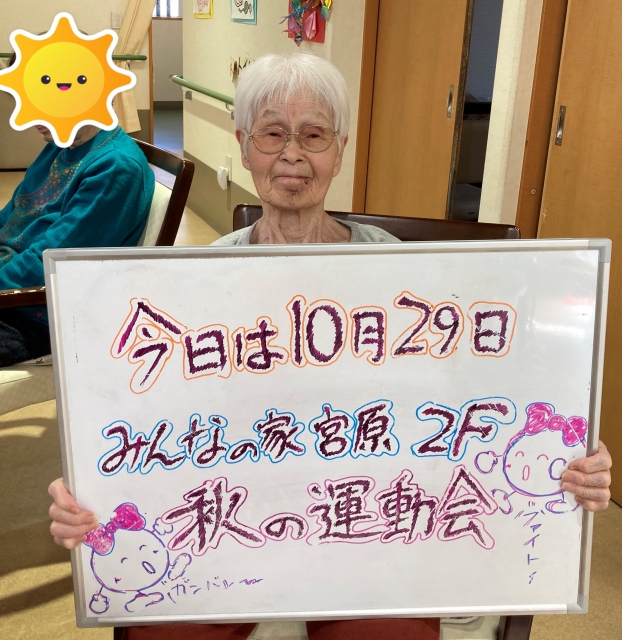 今日は10月29日
みんなの家 宮原 2F
秋の運動会
ファイト〜
ガンバル〜